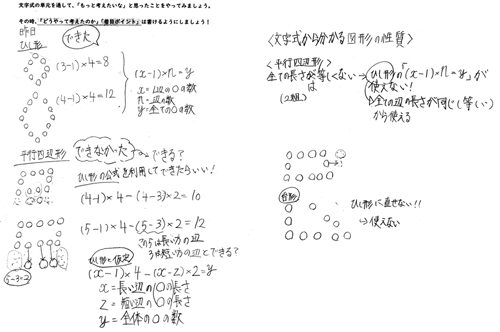 文字式の単元を通して、「もっと考えたいな」と思ったことをやってみましょう。
その時、「どうやって考えたのか」「着目ポイント」は書けるようにしましょう！
昨日
ひし形
できた
(3-1)×4=8
(4-1)×4=12
(x-1)×n=y
x=1辺の〇の数
n=辺の数
y=全ての〇の数
平行四辺形
できなかった
→できる？
ひし形の公式を利用してできたらいい！
(4-1)×4-(4-3)×2=10
(5-1)×4-(5-3)×2=12
この5は長い方の辺
3は短い方の辺とできる？
5-3=2
ひし形と仮定
(x-1)×4-(x-z)×2=y
x=長い辺の〇の長さ
z=短い辺の〇の長さ
y=全体の〇の数
〈文字式から分かる図形の性質〉
〈平行四辺形〉
全ての長さが等しくない→ひし形の「(x-1)×n=y」が
は
使えない！
(2組)
全ての辺の長さが同じ(等しい)
から使える
台形
ひし形に直せない！！
→使えない